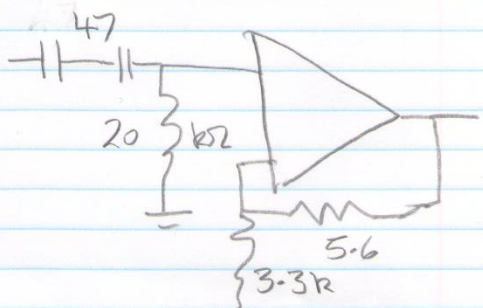 47
20 kΩ
5.6
3.3k